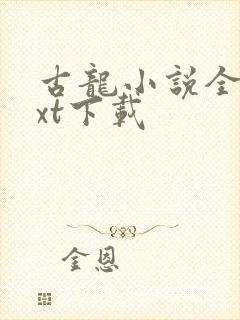 古龍小說全
xt下載
金恩